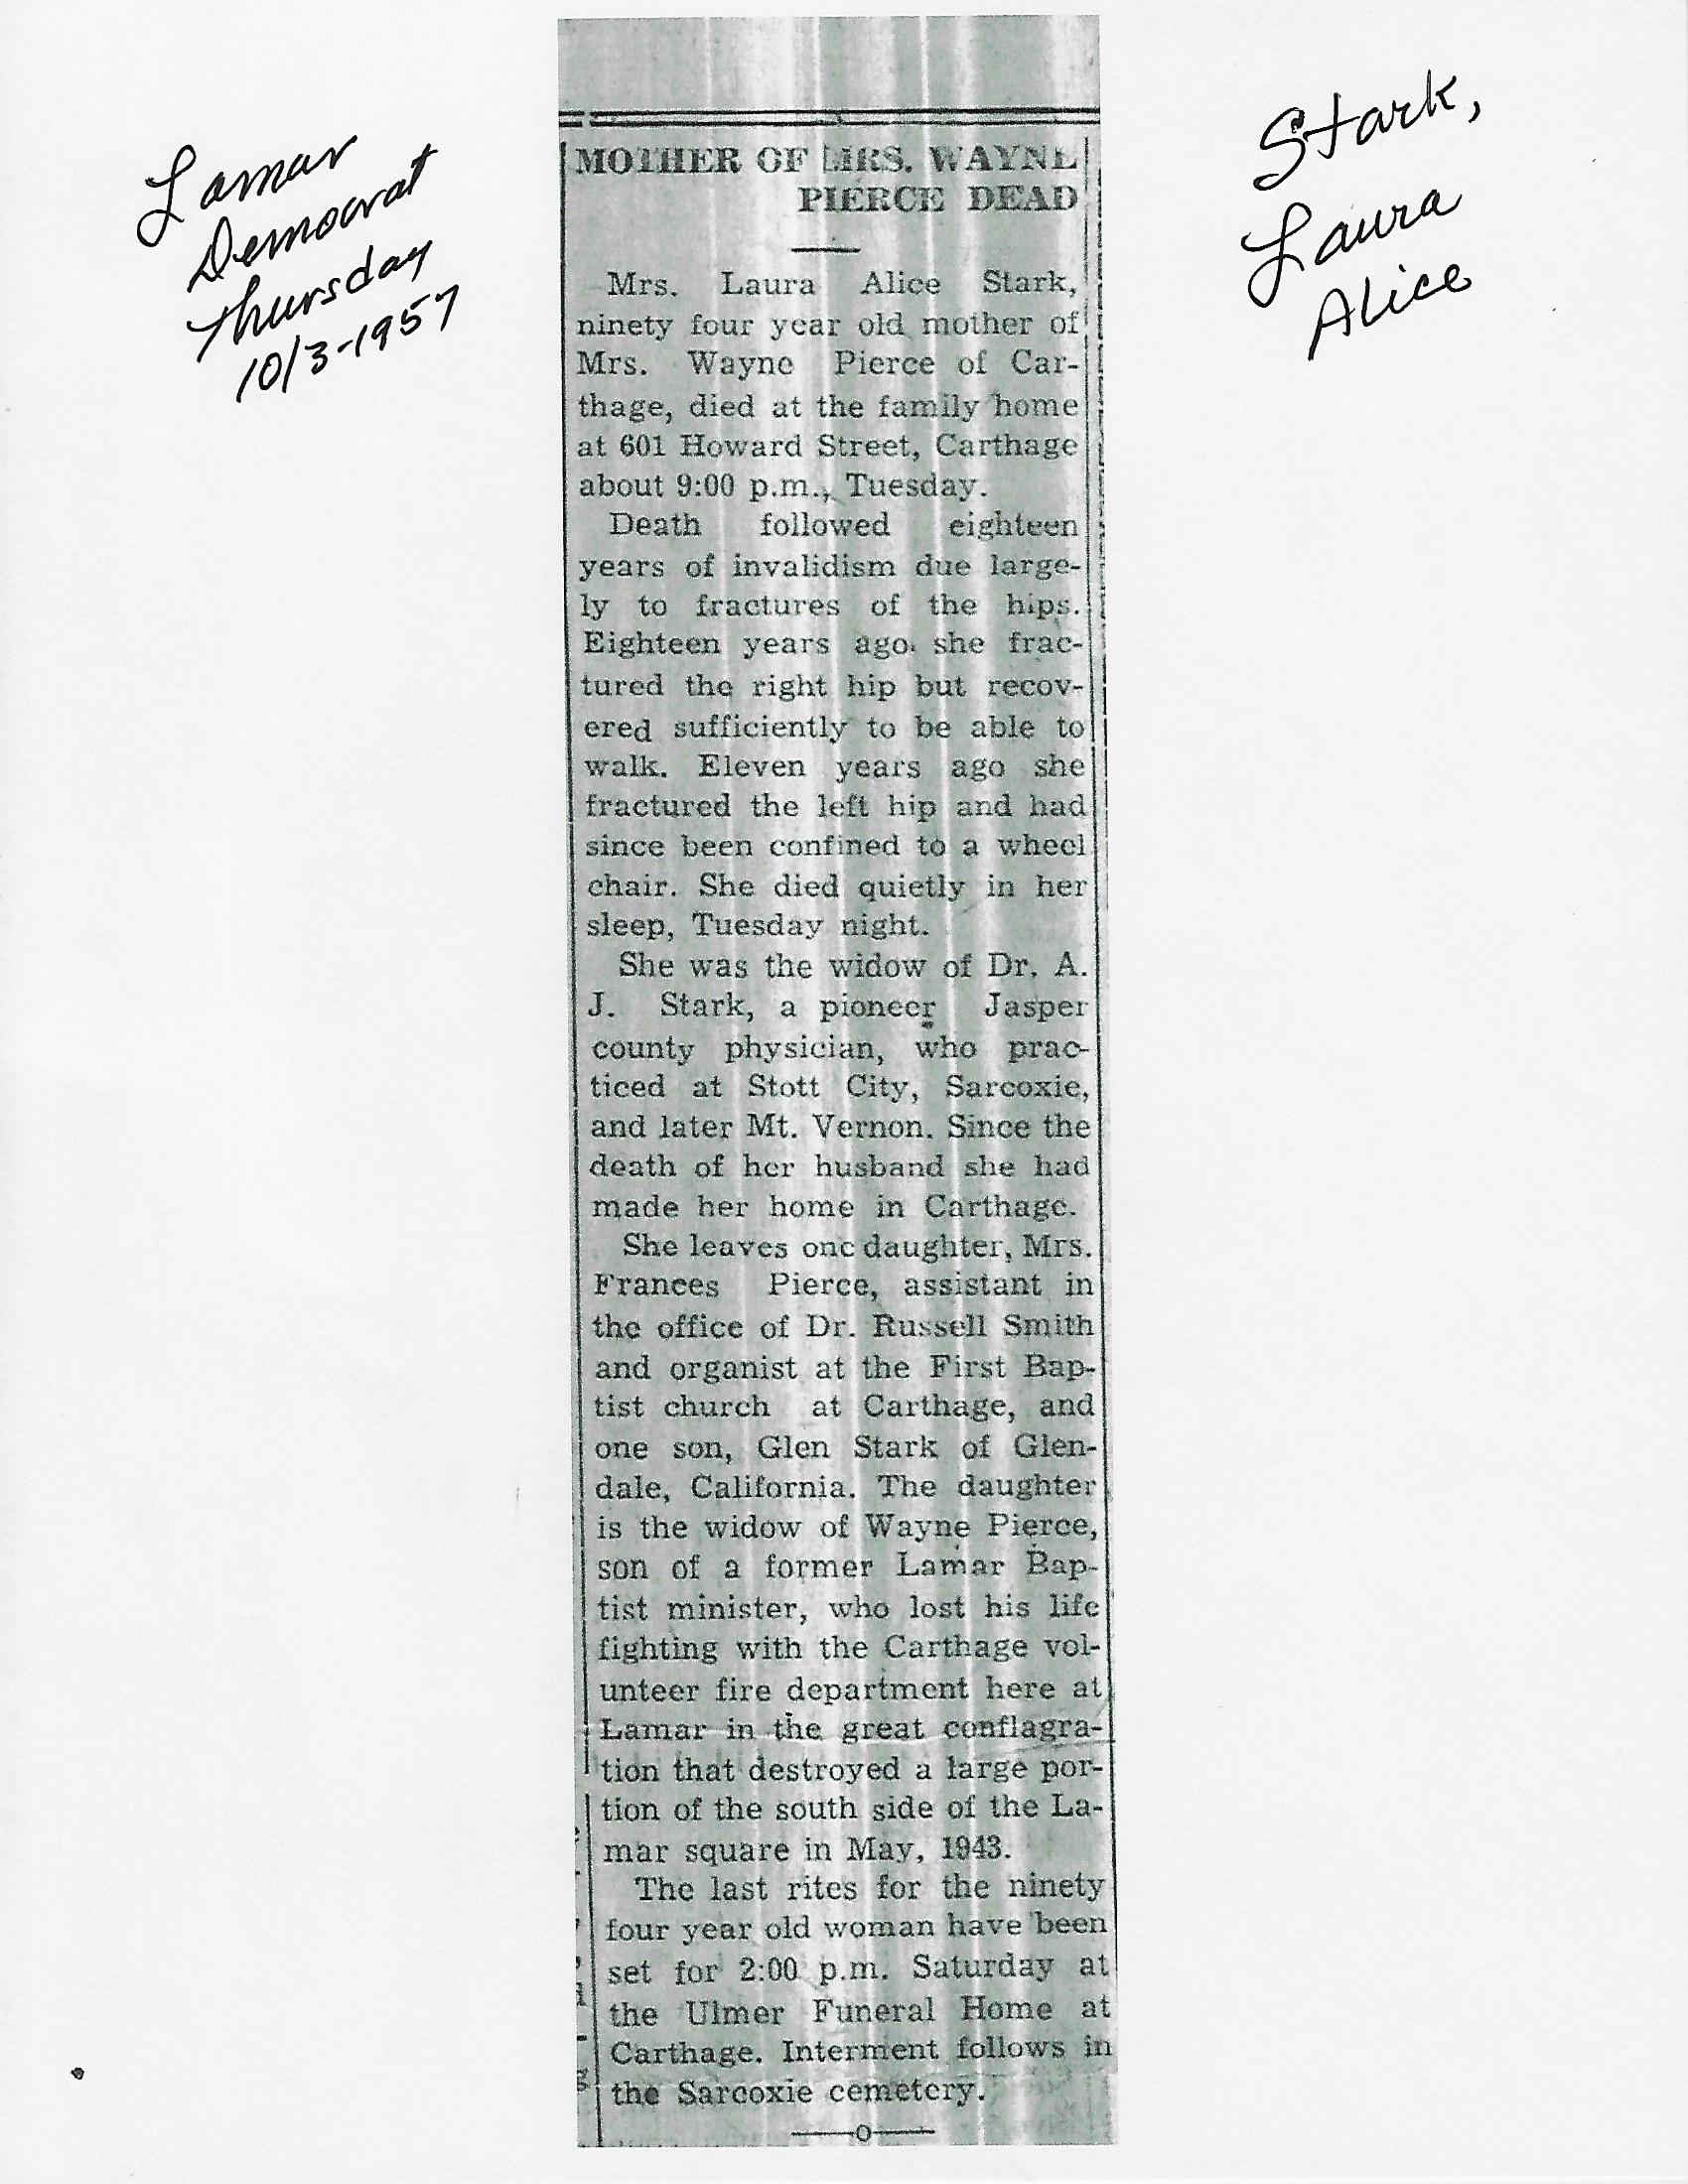 Lamar
Democrat
Thursday
10/3-1957
Stark,
Laura
Alice
MOTHER OF MRS. WAYNE
PIERCE DEAD
Mrs. Laura Alice Stark,
ninety four year old mother of
Mrs. Wayne Pierce of Car-
thage, died at the family home
at 601 Howard Street, Carthage
about 9:00 p.m., Tuesday.
Death followed eighteen
years of invalidism due large-
ly to fractures of the hips.
Eighteen years ago she frac-
tured the right hip but recov-
ered sufficiently to be able to
walk. Eleven years ago she
fractured the left hip and had
since been confined to a wheel
chair. She died quietly in her
sleep, Tuesday night.
She was the widow of Dr. A.
J. Stark, a pioneer Jasper
county physician, who prac-
ticed at Stott City, Sarcoxie,
and later Mt. Vernon. Since the
death of her husband she had
made her home in Carthage.
She leaves one daughter, Mrs.
Frances Pierce, assistant in
the office of Dr. Russell Smith
and organist at the First Bap-
tist church at Carthage, and
one son, Glen Stark of Glen-
dale, California. The daughter
is the widow of Wayne Pierce,
son of a former Lamar Bap-
tist minister, who lost his life
fighting with the Carthage vol-
unteer fire department here at
Lamar in the great conflagra-
tion that destroyed a large por-
tion of the south side of the La-
mar square in May, 1943.
The last rites for the ninety
four year old woman have been
set for 2:00 p.m. Saturday at
the Ulmer Funeral Home at
Carthage. Interment follows in
the Sarcoxie cemetery.